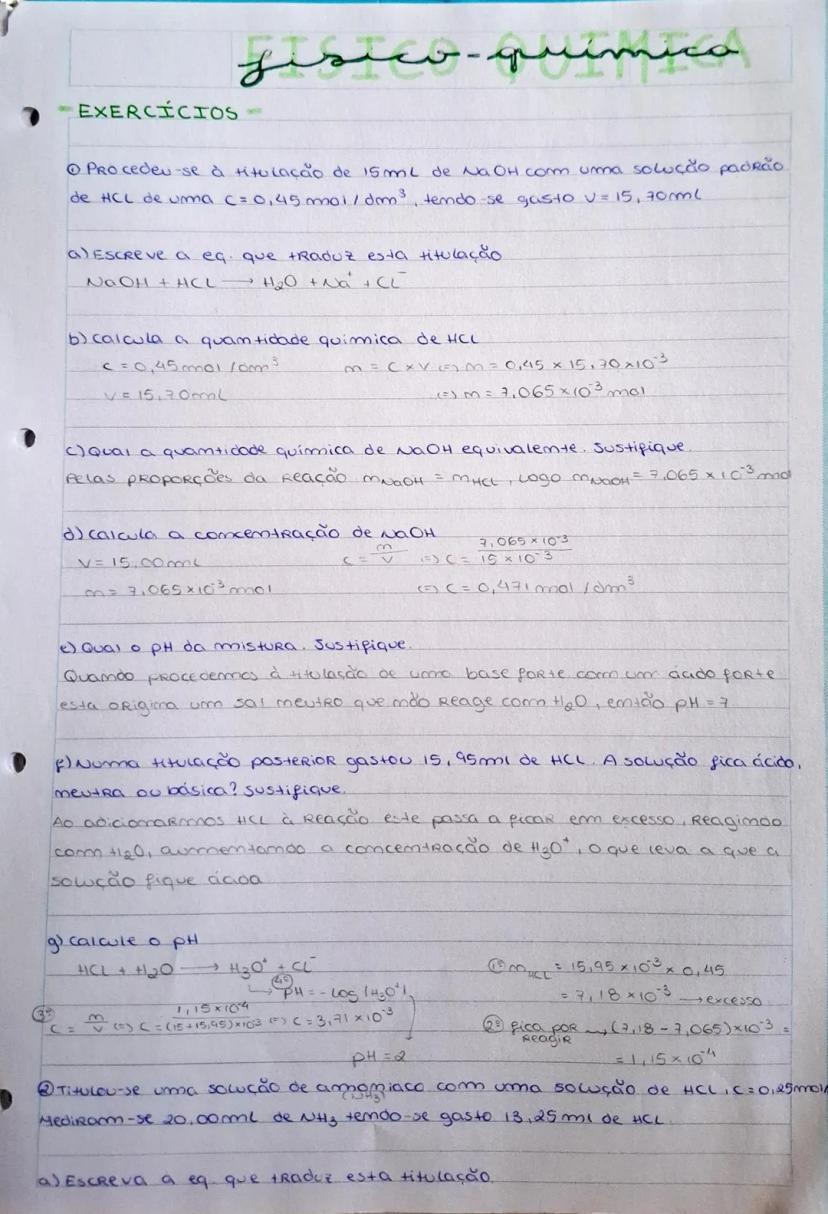 FISICO QUIMICA
fisico-química
- EXERCÍCIOS -
① Procedeu-se à titulação de 15 mL de NaOH com uma solução padrão
de HCL de uma C = 0,45 mol / dm³, tendo-se gasto V = 15,70 ml
a) Escreve a eq. que traduz esta titulação
NaOH + HCL → H₂O + Na⁺ + CL⁻
b) Calcula a quantidade química de HCL
C = 0,45 mol / dm³ n = C × V (=) n = 0,45 × 15,70 × 10⁻³
V = 15,70 mL (=) n = 7,065 × 10⁻³ mol
c) Qual a quantidade química de NaOH equivalente. Justifique.
Pelas proporções da reação n NaOH = n HCL, logo n NaOH = 7,065 × 10⁻³ mol
d) Calcula a concentração de NaOH
V = 15,00 mL C = n/V (=) C = 7,065 × 10⁻³ / 15 × 10⁻³
n = 7,065 × 10⁻³ mol (=) C = 0,471 mol / dm³
e) Qual o pH da mistura. Justifique.
Quando procedemos à titulação de uma base forte com um ácido forte
esta origina um sal neutro que não reage com H₂O, então pH = 7
f) Numa titulação posterior gastou 15,95 ml de HCL. A solução fica ácido,
neutra ou básica? Justifique.
Ao adicionarmos HCL à reação este passa a ficar em excesso, reagindo
com H₂O, aumentando a concentração de H₃O⁺, o que leva a que a
solução fique ácida
g) Calcule o pH
HCL + H₂O → H₃O⁺ + CL⁻ ①º n HCL = 15,95 × 10⁻³ × 0,45
④º pH = - log |H₃O⁺| = 7,18 × 10⁻³ → excesso
③º C = n/V (=) C = 1,15 × 10⁻⁴ / (15 + 15,95) × 10⁻³ (=) C = 3,71 × 10⁻³ ②º fica por reagir → (7,18 - 7,065) × 10⁻³ =
pH = 2 = 1,15 × 10⁻⁴
② Titulou-se uma solução de amoníaco (NH₃) com uma solução de HCL, C = 0,25 mol/
Mediram-se 20,00 mL de NH₃ tendo-se gasto 13,25 ml de HCL.
a) Escreva a eq. que traduz esta titulação.